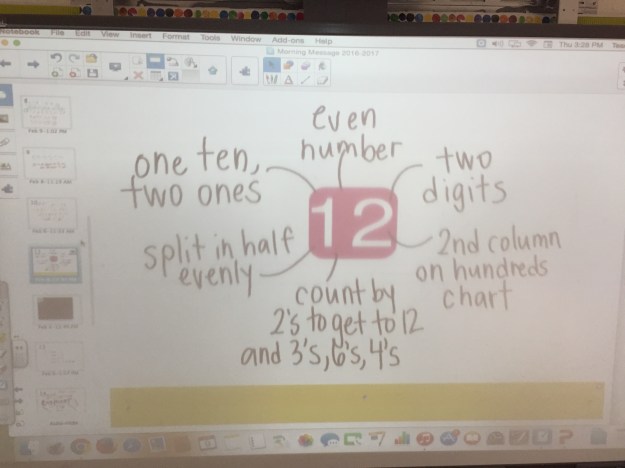 Notebook File Edit View Insert Format Tools Window Add-ons Help
Thu 3:28 PM
Morning Message 2016-2017
even
number
one ten,
two ones
two
digits
12
split in half
evenly
2nd column
on hundreds
chart
count by
2's to get to 12
and 3's, 6's, 4's